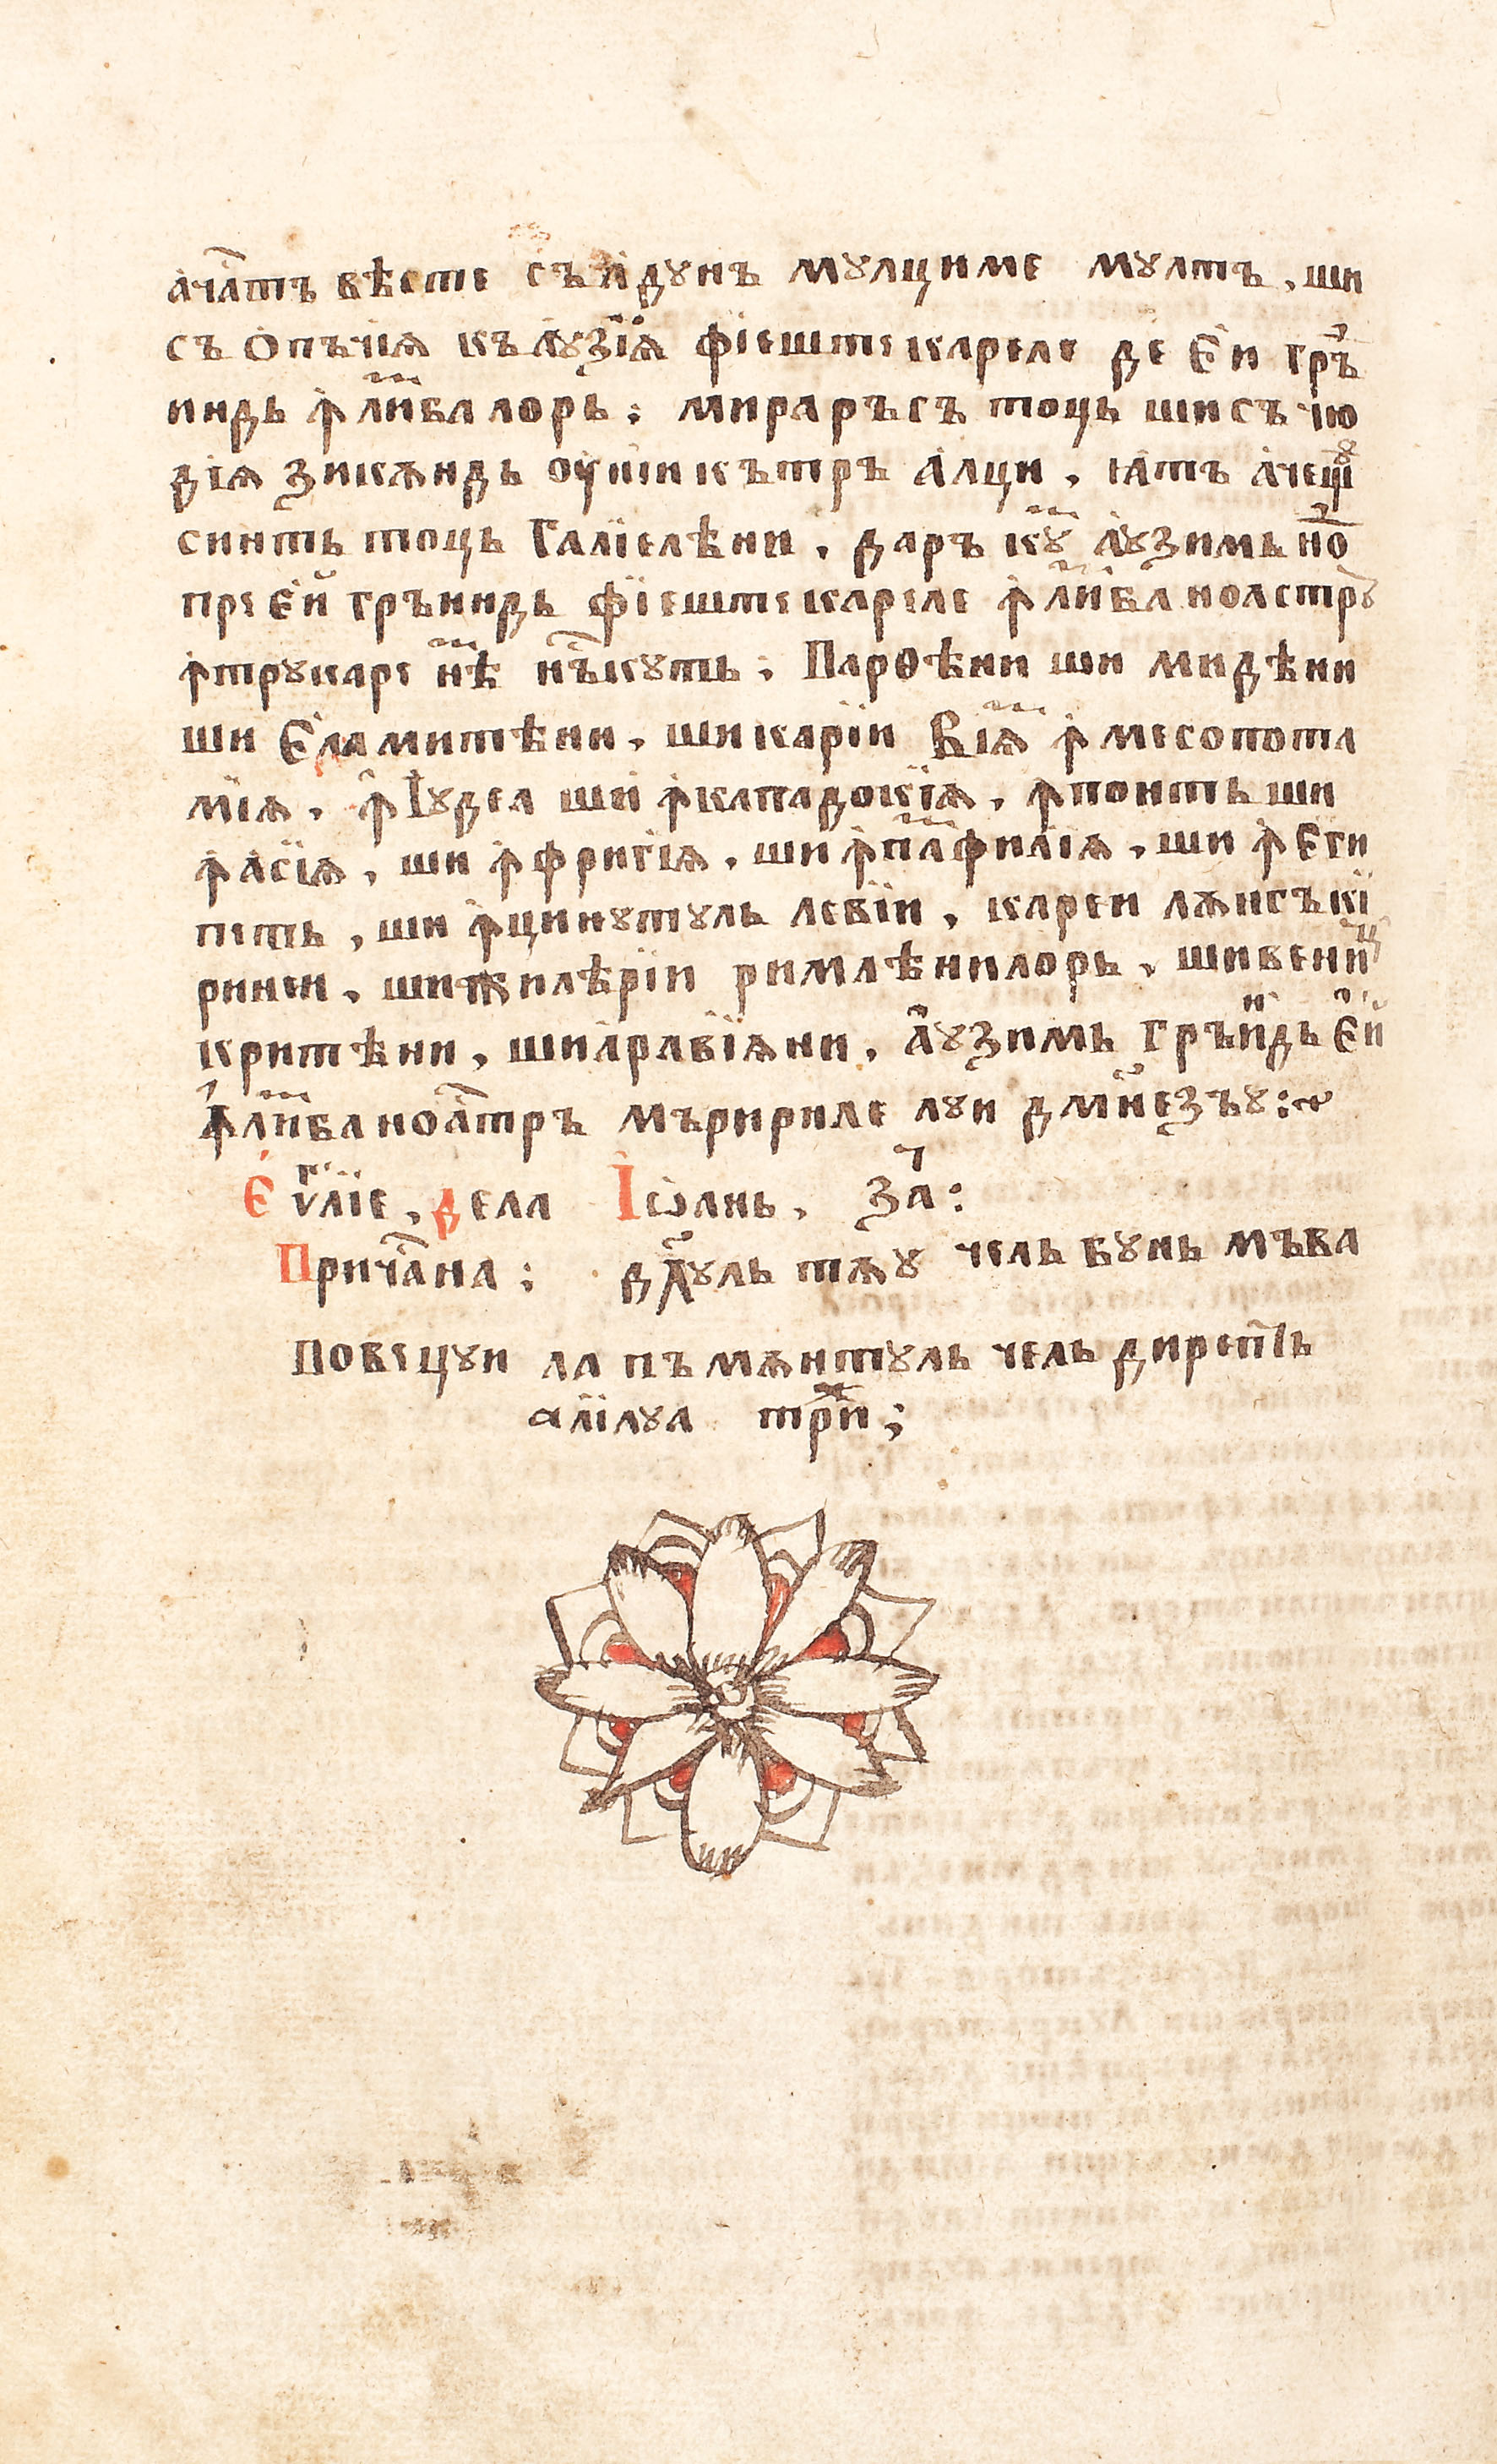 ачⷭ҇атъ вѣсте съ адунъ мꙋлциме мꙋлтъ, ши
съ ѻпъчїѧ къ аꙋзїѧ фїещте кареле де єи гръ
индь ꙟ лимба лорь: мираръсъ тоць шисъ чю
дїѧ зикѫндь оунїи кътръ алци, ꙗтъ ачещїꙋ
синть тоць Галїелѣни, даръ кꙋм аꙋзимь ної
прє єй гръиндь фїещте кареле ꙟ лимба ноастръ
ꙟтрꙋкаре не нъⷭ҇кꙋть: Парѳѣни ши мидѣни
ши Єламитѣни, ши карїи вїѧ ꙟ месопота
мїѧ, ꙟ Їꙋдеа ши ꙟ кападокїѧ, ꙟ понть ши
ꙟ асїѧ, ши ꙟ фригїѧ, ши ꙟ памфилїѧ, ши ꙟ Єги
петь, ши ꙟ цинꙋтꙋль левїи, карєи лѫнгъ кї
ринєи, ши жилѣрїи римлѣнилорь, ши венїиц
критѣни, ши аравїѧни, аꙋзимь гръиндь єй
ꙟ лимба ноаⷭ҇тръ мъририле лꙋи дмнезъꙋ:~
Єѵⷢ҇лїе, дела Іѡань, за҃:
Причаⷭ҇на: дꙋⷯꙋль тѫꙋ чель бꙋнь мъва
Повецꙋи ла пъмѫнтꙋль чель дирепть
алїлꙋа трⷤи;